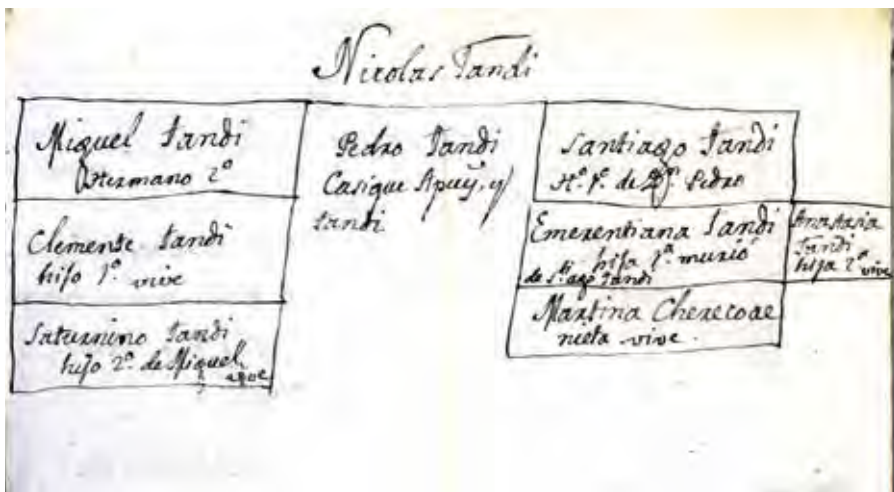 Nicolas Tandi
Miguel Tandi
Hermano 2º
Clemente Tandi
hijo 1º vive
Saturnino Tandi
hijo 2º de Miguel
vive
Pedro Tandi
Casique Apuy, y
tandi
Santiago Tandi
Hº. 1º. de Dn. Pedro
Emerentiana Tandi
hija 1ª murió
de S.tiago Tandi
Anastasia
Tandi
hija 2ª vive
Martina Cherecoae
nieta vive.